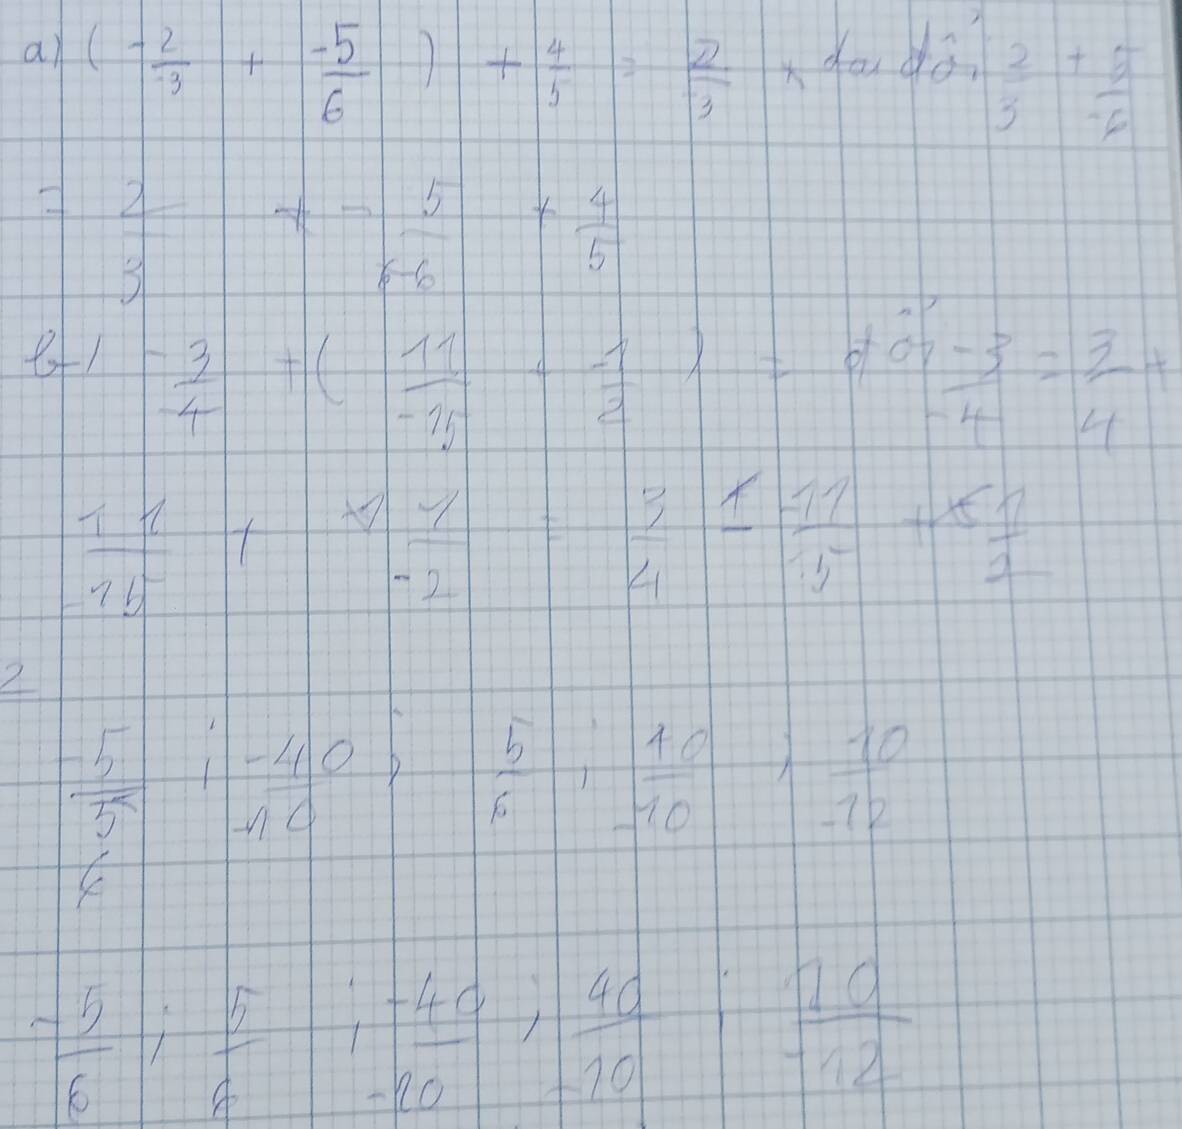 a) ( -2/-3 + -5/6 ) + 4/5 = 2/3 + đối 2/3 + 5/-6
= 2/3 + - 5/-6 + 4/5
b) -3/-4 + ( 11/-15 + -1/2 ) = đối -3/-4 = 3/4 +
11/-15 + 1/-2 = 3/4 -11/15 + 1/2
2
-5/5 ; -40/-10 ; 5/6 ; 40/-10 ; 10/-12
6
-5/6 ; 5/6 ; -40/-10 ; 40/-10 ; 10/-12